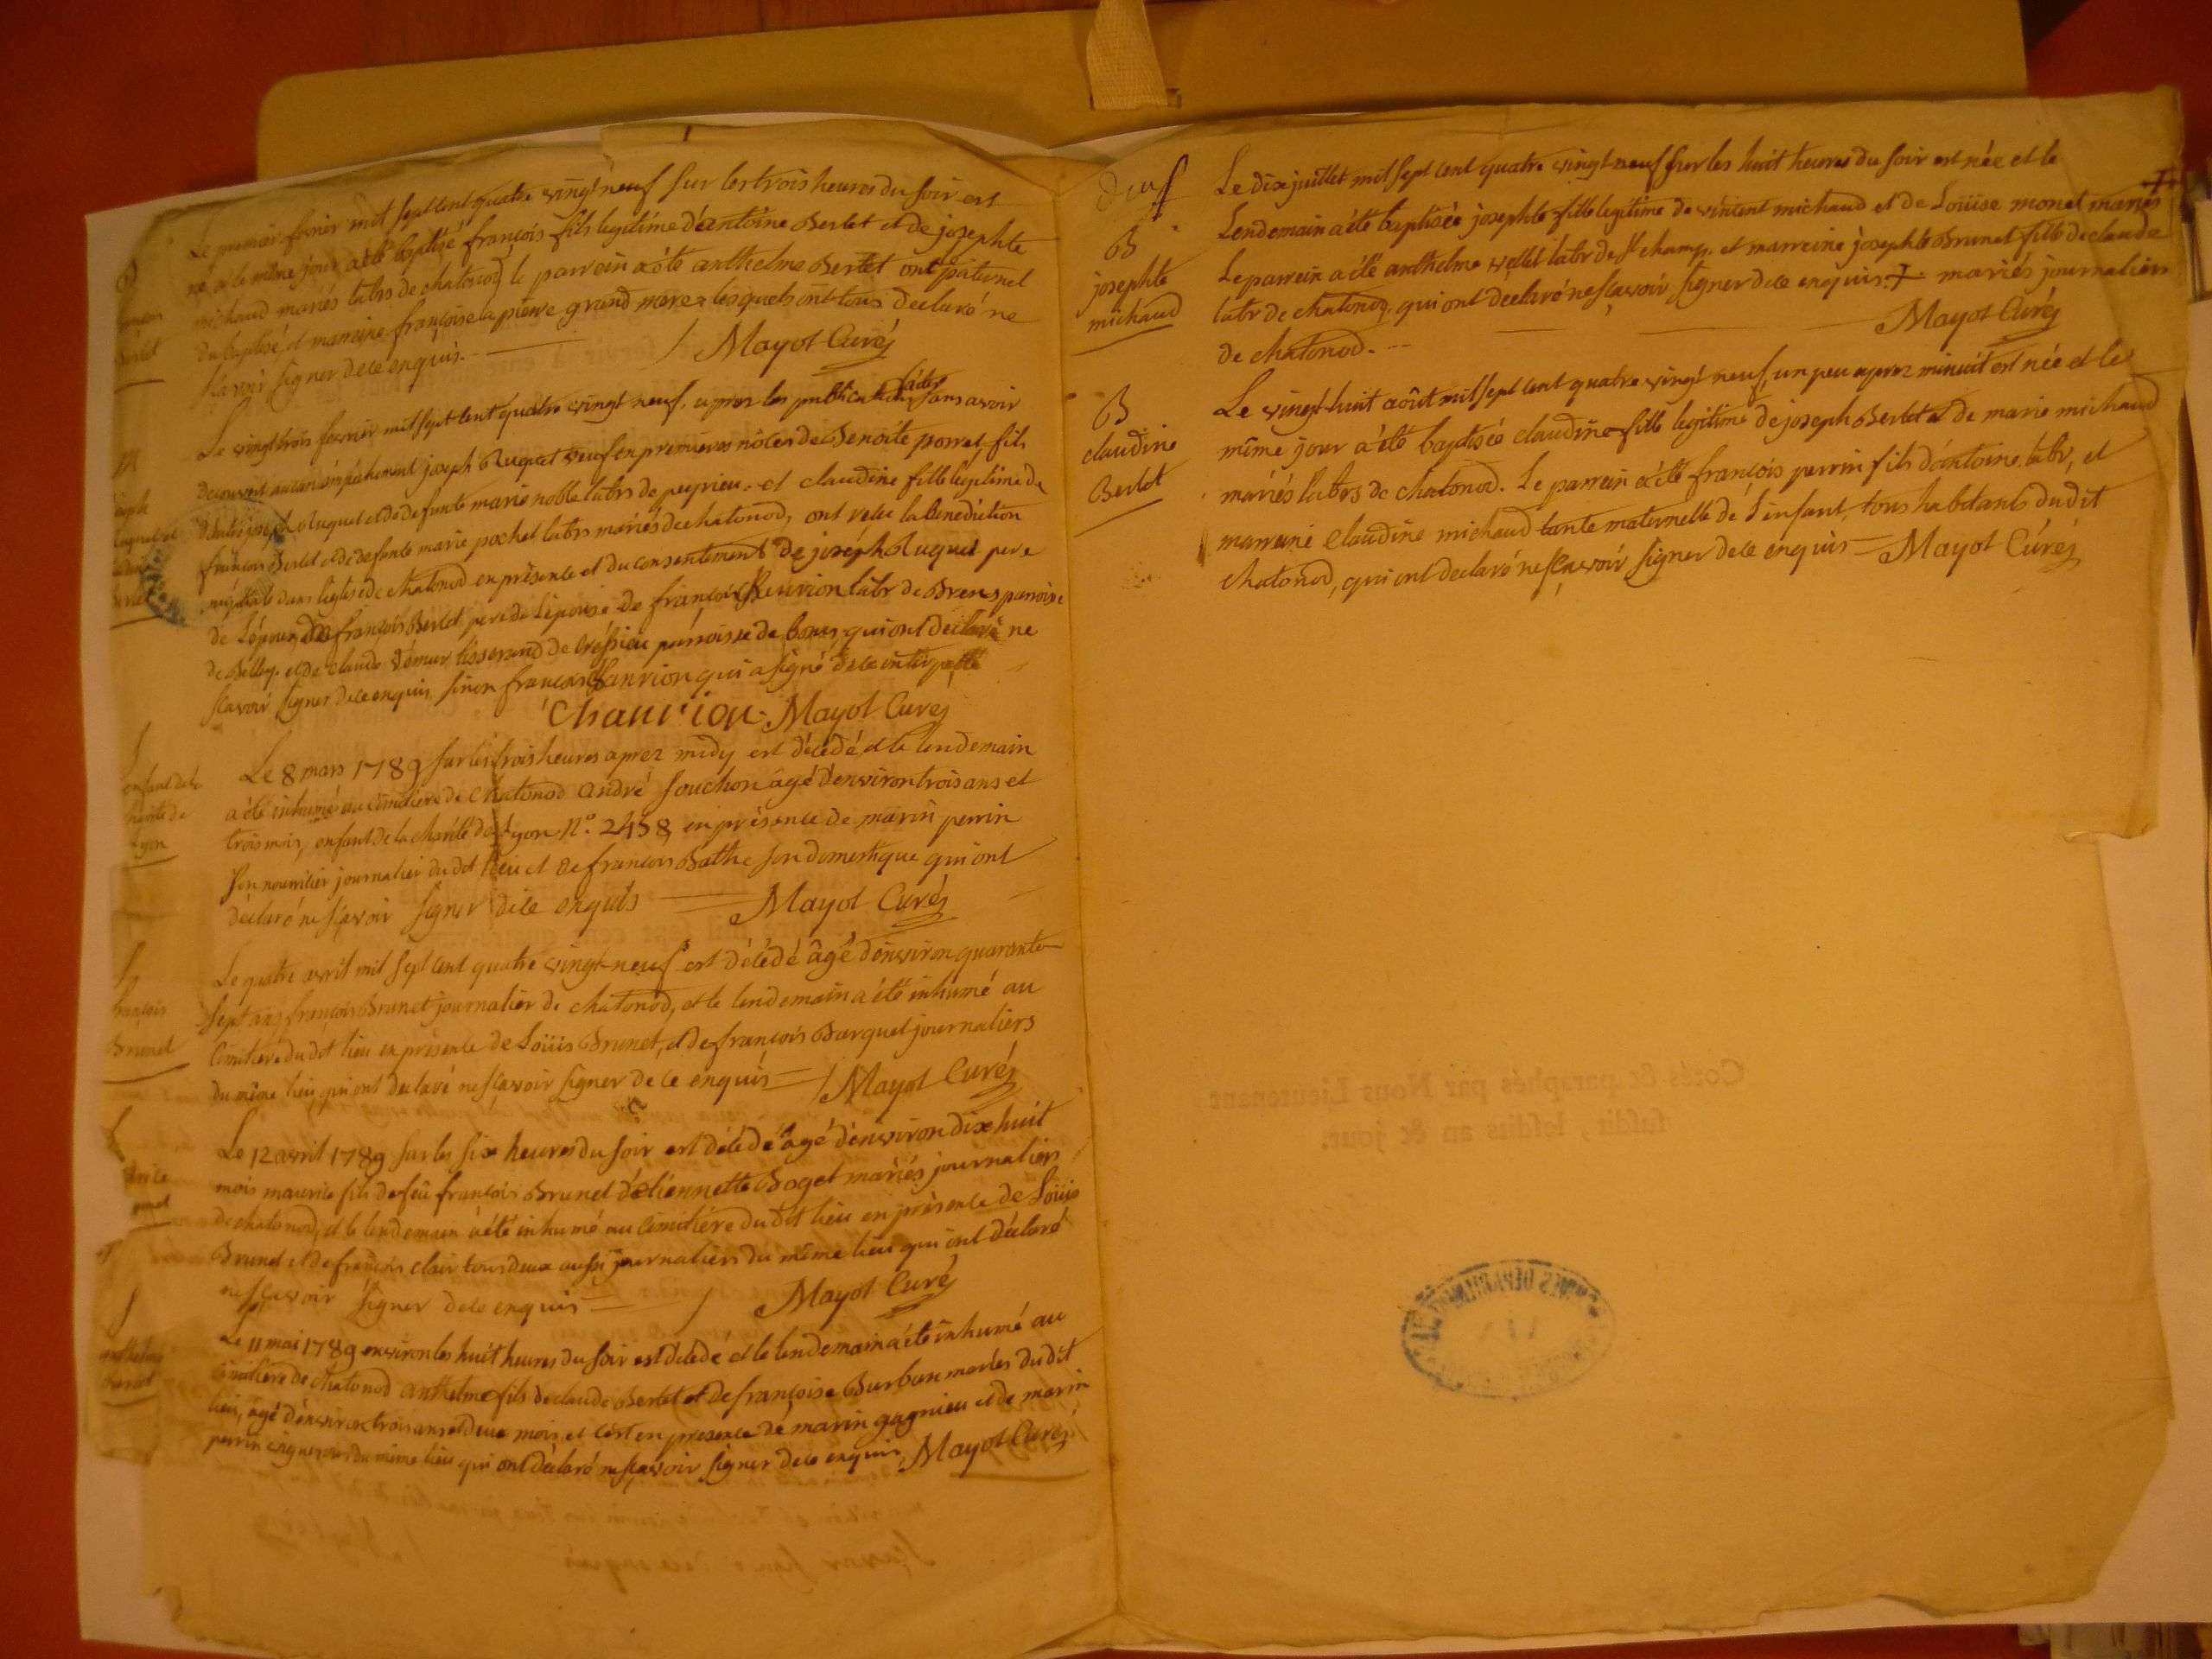 Le premier fevrier mil sept cent quatre vingt neuf sur les trois heures du soir est
né et le même jour a été baptisé françois fils legitime d'antoine Berlet et de josephte
michaud mariés labrs de chatonod, le parrein a été anthelme Berlet oncle paternel
du baptisé, et marreine françoise lapierre grand mere, lesquels ont tous declaré ne
sçavoir signer de ce enquis. Mayot Curé
Berlet
Le vingt trois fevrier mil sept cent quatre vingt neuf, aprez les publications faites sans avoir
decouvert aucun empêchement joseph Ruguet veuf en premieres nôces de Benoite porret, fils
d'autre joseph Ruguet et de defunte marie noble labrs de peyrieu, et claudine fille legitime de
françois Berlet et de defunte marie pochet labrs mariés de chatonod, ont reçu la benediction
nuptiale dans l'eglise de chatonod en présence et du consentement de joseph Ruguet pere
de l'époux, de françois Berlet pere de l'épouse de françois labr de Brens parroisse
de Belley, et de claude tisserand de parroisse de qui ont declaré ne
sçavoir signer de ce enquis, sinon françois Chanrion qui a signé de ce interpellé
Chanrion Mayot Curé
enfant de la
charité de
Lyon
Le 8 mars 1789 sur les trois heures aprez midy est décédé et le lendemain
a été inhumé au cimitiere de chatonod andré souchon âgé d'environ trois ans et
trois mois, enfant de la charité de Lyon N°. 2458, en présence de marin perrin
son nourricier journalier du dit lieu et de françois Bathie son domestique qui ont
déclaré ne sçavoir signer de ce enquis Mayot Curé
françois
Brunet
Le quatre avril mil sept cent quatre vingt neuf est décédé âgé d'environ quarante
sept ans françois Brunet journalier de chatonod, et le lendemain a été inhumé au
cimitiere du dit lieu en présence de Loüis Brunet, et de françois Barquet journaliers
du même lieu, qui ont declaré ne sçavoir signer de ce enquis Mayot Curé
Le 12 avril 1789 sur les six heures du soir est décédé âgé d'environ dix huit
mois maurice fils de feû françois Brunet d'etiennette Boget mariés journaliers
de chatonod, et le lendemain a été inhumé au cimitiére du dit lieu en présence de Loüis
Brunet et de françois clair tous deux aussi journaliers du même lieu qui ont déclaré
ne sçavoir signer de ce enquis Mayot Curé
anthelme
Berlet
Le 11 mai 1789 environ les huit heures du soir est décédé et le lendemain a été inhumé au
cimitiére de chatonod anthelme fils de claude Berlet et de françoise Burbun mariés du dit
lieu, âgé d'environ trois ans et deux mois, et c'est en presence de marin gagnieu et de marin
perrin du même lieu qui ont déclaré ne sçavoir signer de ce enquis. Mayot Curé
deux
B
josephte
michaud
Le dix juillet mil sept cent quatre vingt neuf sur les huit heures du soir est née et le
Lendemain a été baptisée josephte fille legitime de vincent michaud et de Loüise monet mariés +
Le parrein a été anthelme vellet labr de St champ. et marreine josephte Brunet fille de claude
labr de chatonod. qui ont declaré ne sçavoir signer de ce enquis. + mariés journaliers
de chatonod. Mayot Curé
B
claudine
Berlet
Le vingt huit août mil sept cent quatre vingt neuf, un peu aprez minuit est née et le
même jour a été baptisée claudine fille legitime de joseph Berlet et de marie michaud
mariés labrs de chatonod. Le parrein a été françois perrin fils d'antoine labr, et
marreine claudine michaud tante maternelle de l'enfant, tous habitants du dit
chatonod, qui ont declaré ne sçavoir signer de ce enquis Mayot Curé
Cotés & paraphés par Nous Lieutenant
susdit, lesdits an & jour.